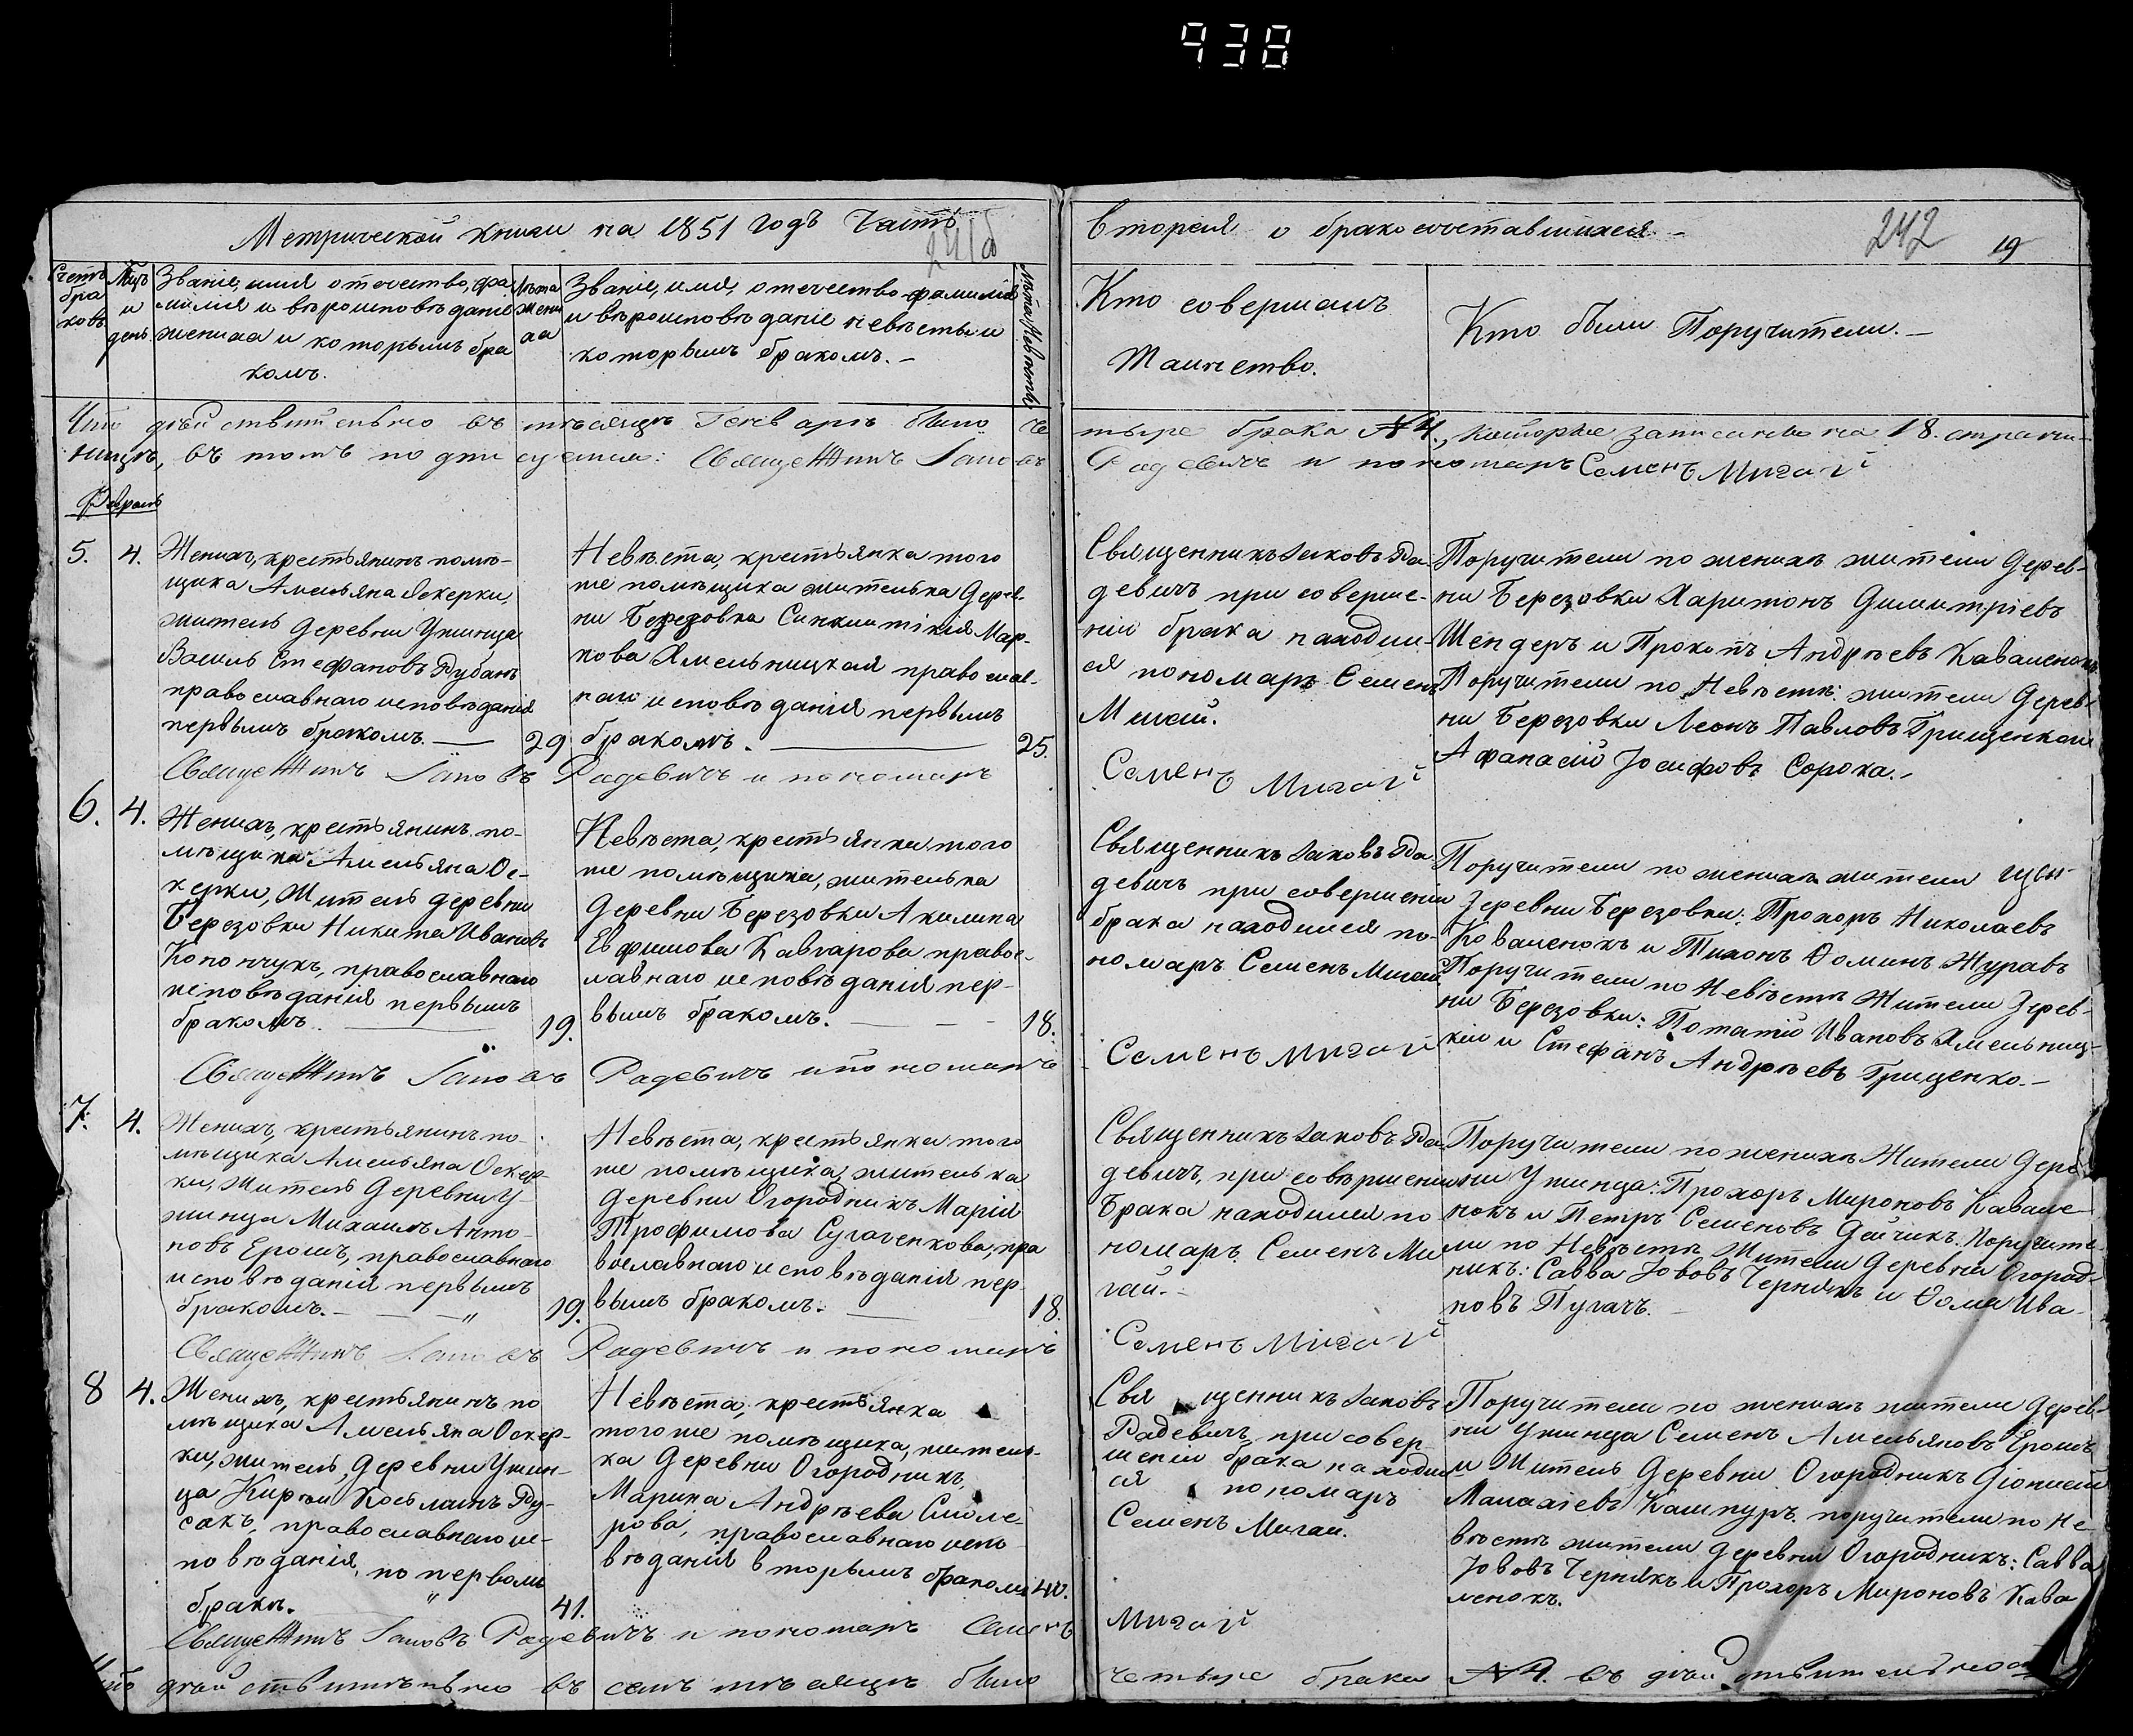 938
Метрической книги на 1851 годъ Часть
Вторая о бракосочетавшихся.-
242
19
Счетъ браковъ
Мцъ и день
Званіе, имя отечество, фа
милія и вѣроисповѣданіе
жениха и которымъ бра
комъ.
Лѣта жениха
Званіе, имя, отечество фамилія
и вѣроисповѣданіе невѣсты и
которымъ бракомъ.-
Лѣта Невѣсты
Кто совершалъ
Таинство.
Кто были Поручители.-
Что дѣйствительно въ мѣсяцѣ Генварѣ было че
тыре брака №4., которые записаны на 18. страни-
ницѣ, въ томъ подписуемся: Священникъ Іаковъ
Радевичъ и пономарь Семенъ Мигай
Февраль
5. 4.
Женихъ, крестьянинъ помѣ-
щика Амельяна Оскерки,
житель деревни Ужинца
Василь Стефановъ Рубанъ
православнаго исповѣданія
первымъ бракомъ.— 29
Невѣста, крестьянка того
же помѣщика жителька дерев-
ни Березовка Синклитикія Мар-
кова Хмельницкая православ-
наго исповѣданія первымъ
бракомъ.— 25.
Священникъ Іаковъ Ра-
девичъ при соверше-
ніи брака находил-
ся пономарь Семенъ
Мигай.
Поручители по женихѣ жители дерев-
ни Березовки Харитонъ Димитріевъ
Шендеръ и Прокопъ Андрѣевъ Каваленокъ
Поручители по Невѣстѣ: жители дерев-
ни Березовки Леонъ Павловъ Грищенко и
Афанасій Іосифовъ Сорока.-
Священникъ Іаковъ Радевичъ и пономарь
Семенъ Мигай
6. 4.
Женихъ, крестьянинъ по-
мѣщика Амельяна Ос-
керки, житель деревни
Березовки Никита Ивановъ
Конончукъ, православнаго
исповѣданія первымъ
бракомъ.— 19.
Невѣста, крестьянка того
же помѣщика, жителька
деревни Березовки Акилина
Евфимова Кавгарова правос-
лавнаго исповѣданія пер-
вымъ бракомъ.— 18.
Священникъ Іаковъ Ра-
девичъ при совершеніи
брака находился по-
номарь Семенъ Мигай
Поручители по женихѣ жители
деревни Березовки: Прохоръ Николаевъ
Коваленокъ и Тихонъ Ѳоминъ Журавъ
Поручители по Невѣстѣ Жители дерев-
ни Березовки: Потапій Ивановъ Хмельниц-
кій и Стефанъ Андрѣевъ Грищенко.-
Священникъ Іаковъ Радевичъ и пономарь
Семенъ Мигай
7. 4.
Женихъ, крестьянинъ по-
мѣщика Амельяна Оскер-
ки, житель деревни У-
жинца Михаилъ Анто-
новъ Ерошъ, православнаго
исповѣданія первымъ
бракомъ.— 19.
Невѣста, крестьянка того
же помѣщика, жителька
деревни Огородникъ Марія
Трофимова Сугаченкова, пра
вославнаго исповѣданія пер-
вымъ бракомъ.— 18.
Священникъ Іаковъ Ра-
девичъ, при совершеніи
Брака находился по
номарь Семенъ Ми
гай.-
Поручители по женихѣ Жители дере
вни Ужинца: Прохоръ Мироновъ Кавале-
нокъ и Петръ Семеновъ Дейчикъ. Поручите-
ли по Невѣстѣ Жители деревни Огород-
никъ: Савва Іововъ Чернякъ и Ѳома Ива-
новъ Пугачъ.-
Священникъ Іаковъ Радевичъ и пономарь
Семенъ Мигай
8 4.
Женихъ, крестьянинъ по
мѣщика Амельяна Оскер-
ки, житель, деревни Ужин-
ца Кирей Косьминъ Ру-
сакъ, православнаго ис-
повѣданія, по первомъ
бракѣ. 41.
Невѣста, крестьянка
того же помѣщика, житель-
ка деревни Огородникъ,
Марина Андрѣева Смоле-
рова, православнаго испо-
вѣданія вторымъ бракомъ 40.
Священникъ Іаковъ
Радевичъ при совер-
шеніи брака находил
ся пономарь
Семенъ Мигай.
Поручители по женихѣ жители дерев-
ни Ужинца Семенъ Амельяновъ Ерошъ
и Житель деревни Огородникъ Діонисій
Малахіевъ Кашпуръ. поручители по Не-
вѣстѣ жители деревни Огородникъ: Савва
Іововъ Чернякъ и Прохоръ Мироновъ Кава
ленокъ.
Священникъ Іаковъ Радевичъ и пономарь Семенъ
Мигай
Что дѣйствительно въ семъ мѣсяцѣ было
четыре брака №4. въ дѣйствительно